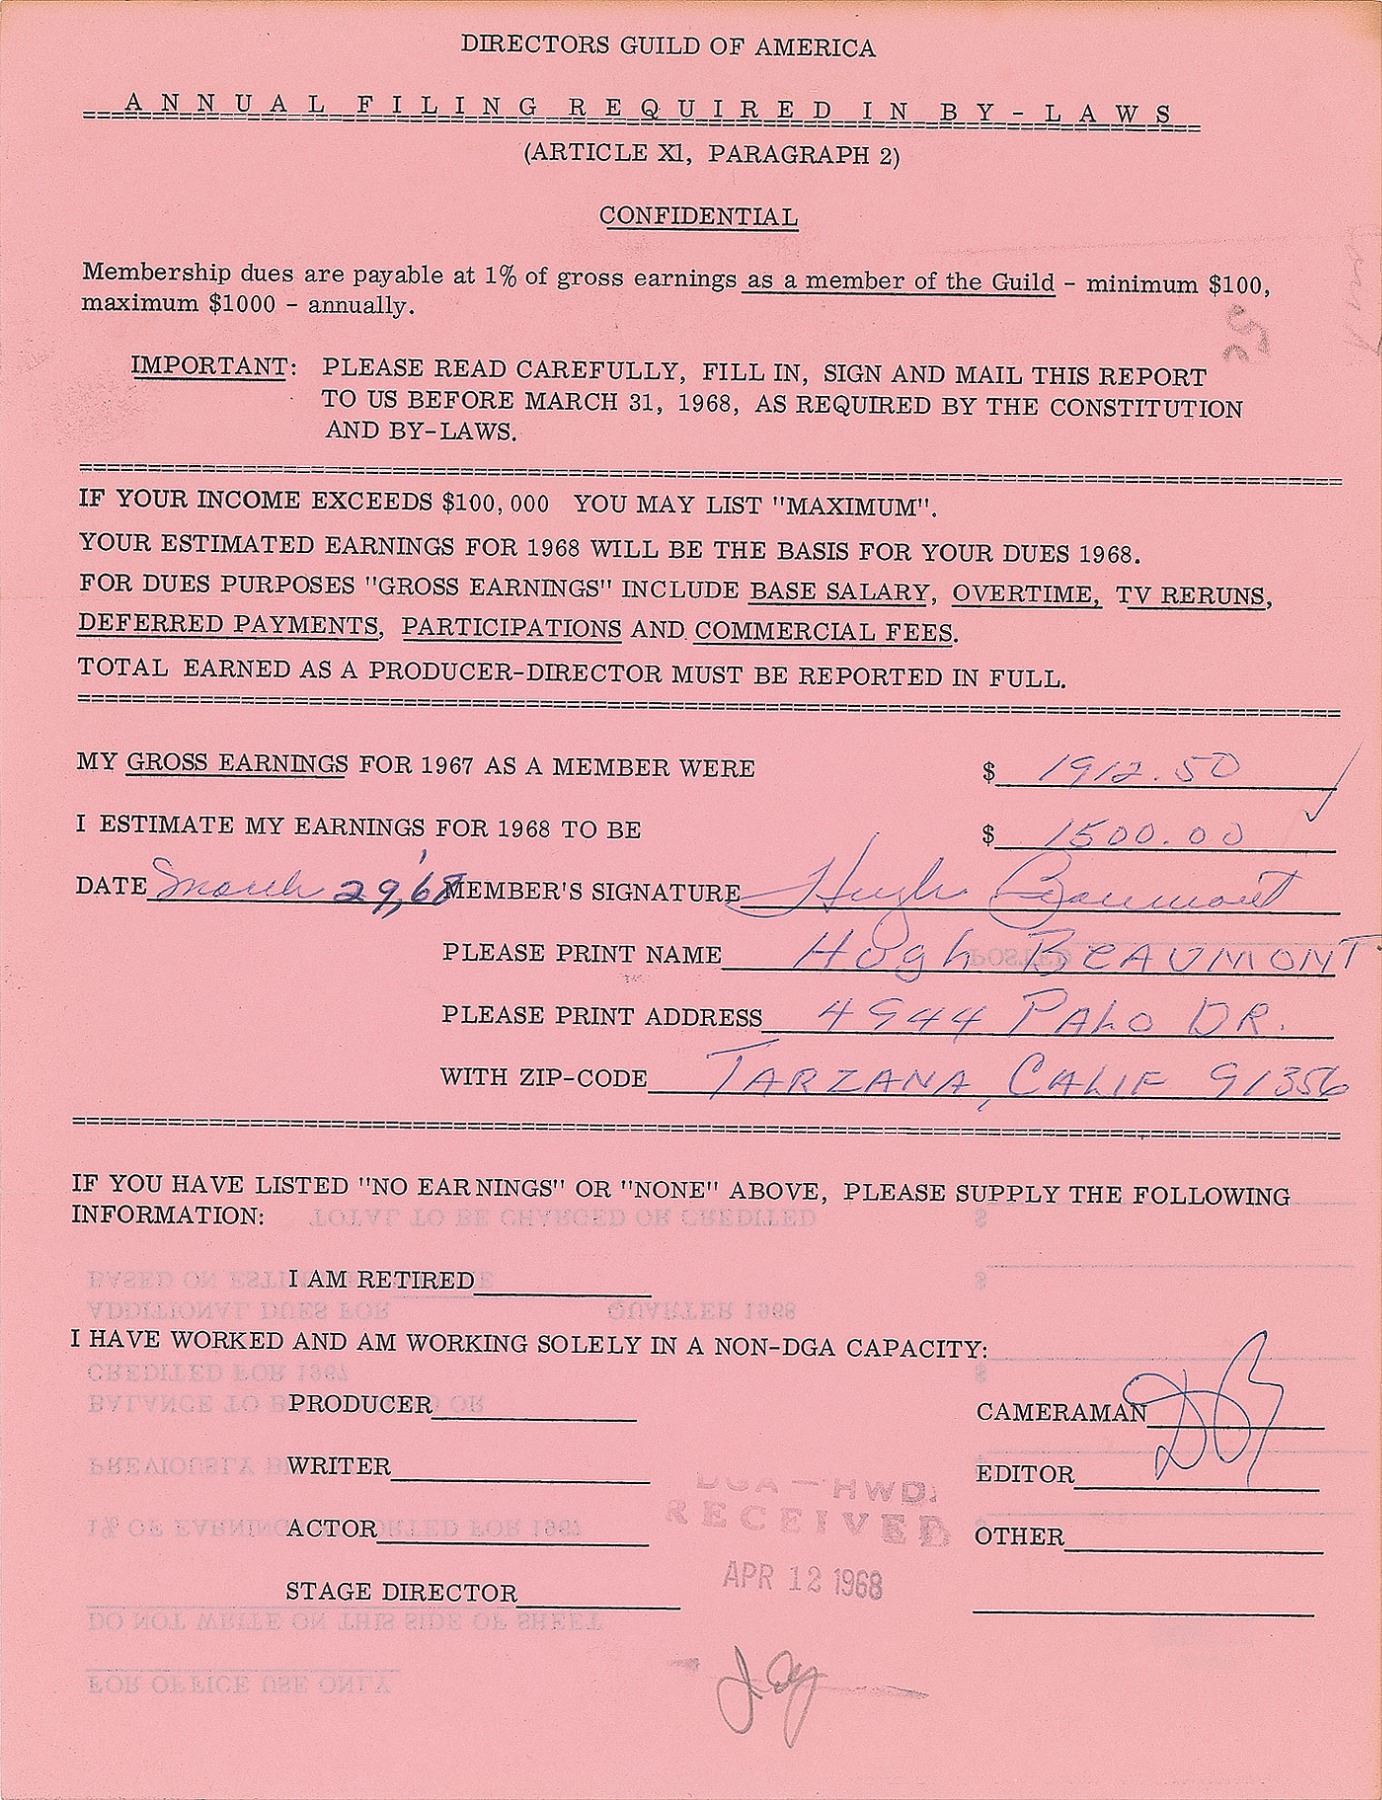 DIRECTORS GUILD OF AMERICA
ANNUAL FILING REQUIRED IN BY-LAWS
(ARTICLE X1, PARAGRAPH 2)
CONFIDENTIAL
Membership dues are payable at 1% of gross earnings as a member of the Guild - minimum $100,
maximum $1000 - annually.
IMPORTANT: PLEASE READ CAREFULLY, FILL IN, SIGN AND MAIL THIS REPORT
TO US BEFORE MARCH 31, 1968, AS REQUIRED BY THE CONSTITUTION
AND BY-LAWS.
IF YOUR INCOME EXCEEDS $100,000 YOU MAY LIST "MAXIMUM".
YOUR ESTIMATED EARNINGS FOR 1968 WILL BE THE BASIS FOR YOUR DUES 1968.
FOR DUES PURPOSES "GROSS EARNINGS" INCLUDE BASE SALARY, OVERTIME, TV RERUNS,
DEFERRED PAYMENTS, PARTICIPATIONS AND COMMERCIAL FEES.
TOTAL EARNED AS A PRODUCER-DIRECTOR MUST BE REPORTED IN FULL.
MY GROSS EARNINGS FOR 1967 AS A MEMBER WERE $ 1912.50
I ESTIMATE MY EARNINGS FOR 1968 TO BE $ 1500.00
DATE March 29, '68 MEMBER'S SIGNATURE Hugh Beaumont
PLEASE PRINT NAME Hugh BEAUMONT
PLEASE PRINT ADDRESS 4944 PALO DR.
WITH ZIP-CODE TARZANA, CALIF 91356
IF YOU HAVE LISTED "NO EARNINGS" OR "NONE" ABOVE, PLEASE SUPPLY THE FOLLOWING
INFORMATION: TOTAL TO BE CHARGED OR CREDITED $
I AM RETIRED
ADDITIONAL DUES FOR QUARTER 1968
I HAVE WORKED AND AM WORKING SOLELY IN A NON-DGA CAPACITY:
CREDITED FOR 1967
PRODUCER CAMERAMAN
WRITER EDITOR
DGA - HWD.
RECEIVED
ACTOR OTHER
APR 12 1968
STAGE DIRECTOR
DO NOT WRITE ON THIS SIDE OF SHEET
FOR OFFICE USE ONLY